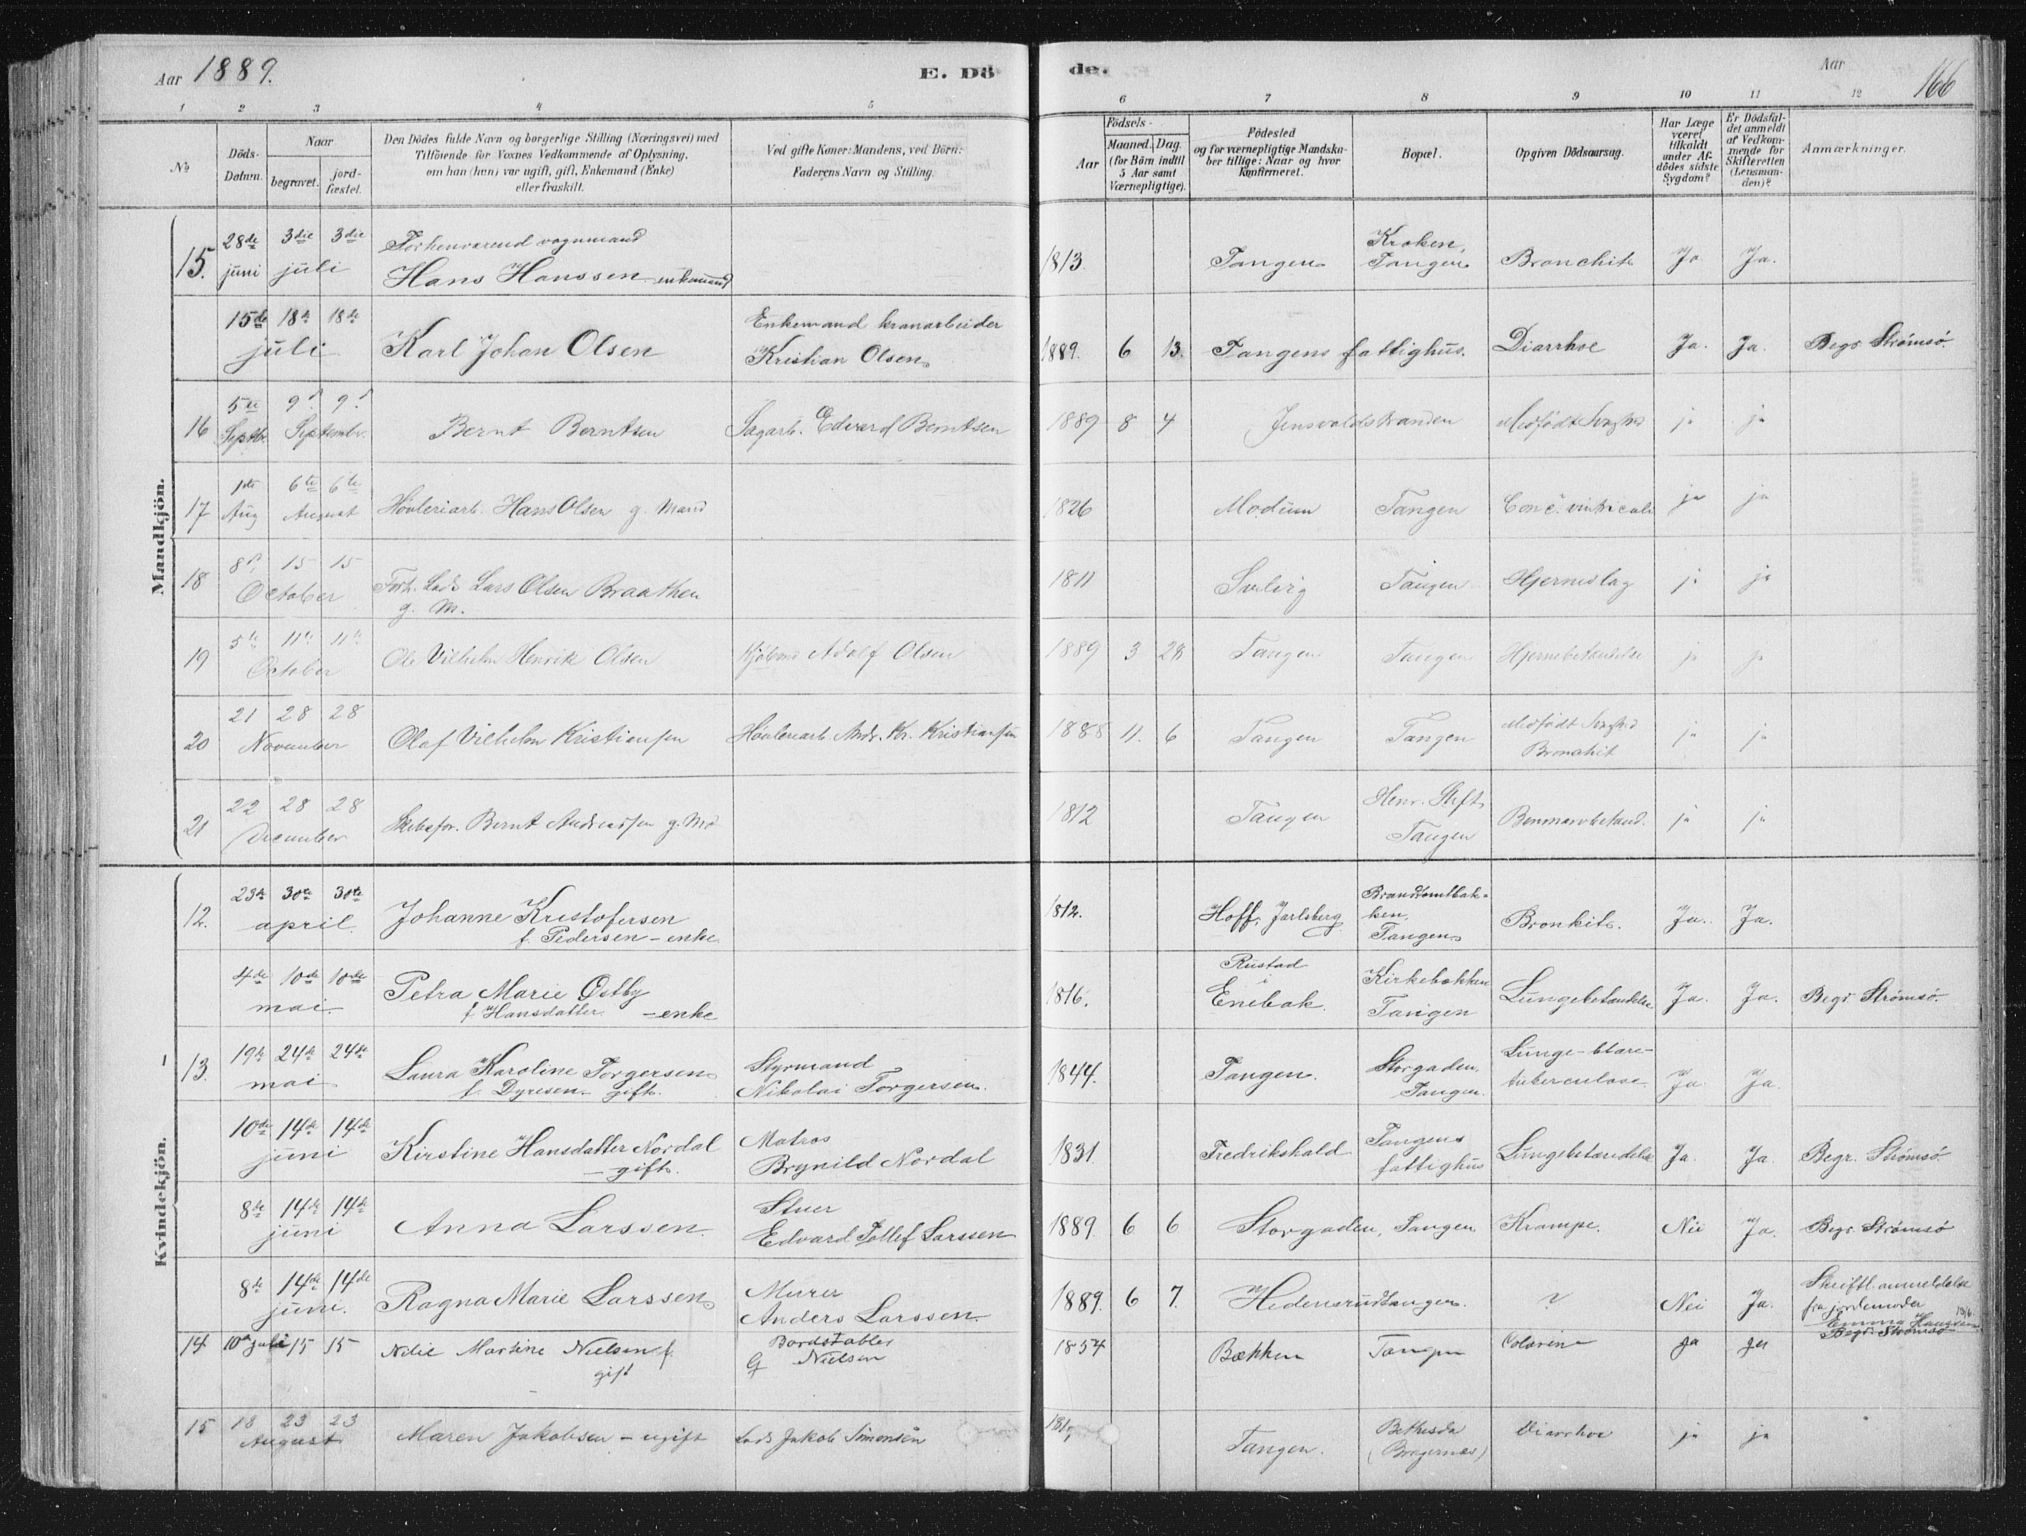 Aar 1889.
E. Dö
de.
Aar
166
1 2 3 4 5 6 7 8 9 10 11 12
No
Döds-Datum.
Naar
begravet.
jordfæstet.
Den Dödes fulde Navn og borgerlige Stilling (Næringsvei) med
Tilföiende for Voxnes Vedkommende af Oplysning,
om han (hun) var ugift, gift, Enkemand (Enke)
eller fraskilt.
Ved gifte Koner: Mandens, ved Börn:
Faderens Navn og Stilling.
Födsels-
Aar
Maaned. Dag.
(for Börn indtil
5 Aar samt
Værnepligtige).
Födested
og for værnepligtige Mandskaber tillige: Naar og hvor
Konfirmeret.
Bopæl.
Opgiven Dödsaarsag.
Har Læge
været
tilkaldt
under Afdödes sidste
Sygdom?
Er Dödsfaldet anmeldt
af Vedkommende for
Skifteretten
(Lensmanden)?
Anmærkninger.
Mandkjön.
15. 28de juni 3die 3die juli Forhenværend vognmand
Hans Hanssen enkemand 1813. Tangen Kroken, Tangen Bronchit Ja Ja.
15de 18de 18de juli Karl Johan Olsen Enkemand kranarbeider
Kristian Olsen 1889. 6 13. Tangens fattighus. Diarrhoe Ja. Ja. Begr Strømsö.
16 5te Septbr. 9d 9d Septembr. Bernt Berntsen Sagarb. Edvard Berntsen 1889 8 4 Medfödt Svaghd ja ja
17 1ste Aug 6te 6te August Høvleriarb. Hans Olsen g. Mand 1826 Modum Tangen ja ja
18 8d 15 15 October Lods Lars Olsen Braathen
g. M. 1811 Svelvig Tangen Hjerneslag ja ja
19 5te 11te 11te October Ole Vilhelm Henrik Olsen Adolf Olsen 1889 3 28 Tangen Tangen Hjernebetændelse ja ja
20 21 28 28 November Olaf Vilhelm Kristiansen Høvleriarb Andr. Kr. Kristiansen 1888 11. 6 Tangen Tangen Medfödt Svaghd
Bronchit ja ja
21 22 28 28 December Skibsfør. Bernt Andreassen g. Md 1812 Tangen Henr. Stift
Tangen Benmarvbetænd. ja ja
Kvindekjön.
12. 23de 30te 30te april. Johanne Kristofersen
f. Pedersen – enke 1812. Hoff, Jarlsberg Tangen Bronkit. Ja. Ja.
4de 10de 10de mai. Petra Marie Østby
f Hansdatter. – enke 1816. Rustad
i
Enebak. Kirkebakken
Tangen Lungebetændelse Ja. Ja. Begr Strømsö.
13. 19de 24de 24de mai Laura Karoline Torgersen
f. Dyresen gift. Styrmand
Nikolai Torgersen. 1844. Tangen. Storgaden,
Tangen. Lunge-blære-
tuberculose. Ja. Ja.
10de 14de 14de juni Kirstine Hansdatter Nordal
– gift. Matros
Brynild Nordal 1831. Fredrikshald Tangens
fattighus Lungebetændelse Ja. Ja. Begr. Strømsö
8de 14de 14de juni Anna Larssen. Stuer
Edvard Tollef Larssen 1889. 6 6 Storgaden, Tangen Krampe. Nei Ja. Begr Strømsö
8de 14de 14de juni. Ragna Marie Larssen Murer
Anders Larssen. 1889. 6 7. Hedensrudtangen. ? Nei Ja. Skriftl. anmeldelse
fra jordemoder 13/6
Emma Haugsen
Begr. Strømsö
14 10de juli 15 15 Martine Nielsen f.
gift Bordstabler
G Nielsen 1854 Bækken Tangen Colorin Ja Ja
15 18 23 23 August Maren Jakobsen – ugift Lods Jakob Simonsen Tangen. Bethesda
(Bragernæs) Diarrhoe ja ja